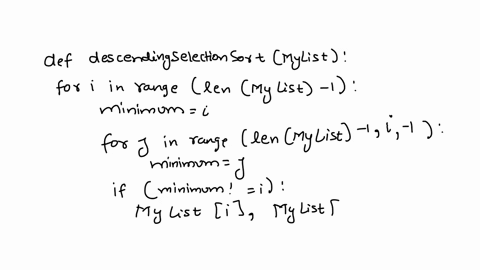 def descendingSelectionSort (MyList):
for i in range (len (My List) -1):
minimum = i
for j in range (len(MyList) -1, i, -1):
minimum = j
if (minimum! = i):
My List [i], MyList[